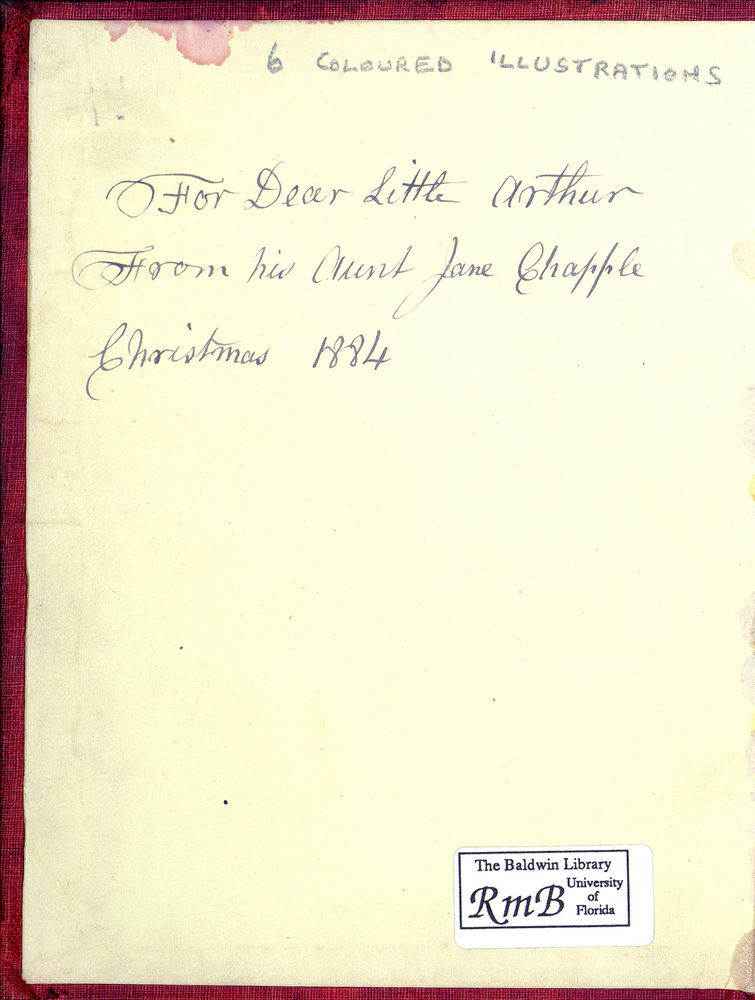 6 COLOURED ILLUSTRATIONS
For Dear Little Arthur
From his Aunt Jane Chapple
Christmas 1884
The Baldwin Library
RmB University
of
Florida